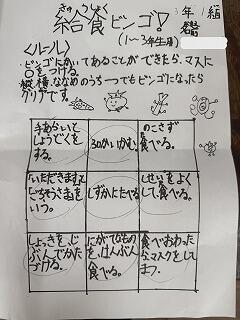 きゅうしょく
給食ビンゴ!
3年1組
(1～3年生用)
<ルール>
ビンゴにかいてあることができたら、マスに
○をつける。
縦、横、ななめのうち一つでもビンゴになったら
クリアです。
手あらいと
しょうどくを
する。
30かいかむ。
のこさず
食べる。
「いただきます」と
「ごちそうさま」を
いう。
しずかにたべる。
しせいをよく
して食べる。
しょっきを、じ
ぶんでかた
づける。
にがてなもの
を、はんぶん
食べる。
食べおわった
らマスクをし
ます。